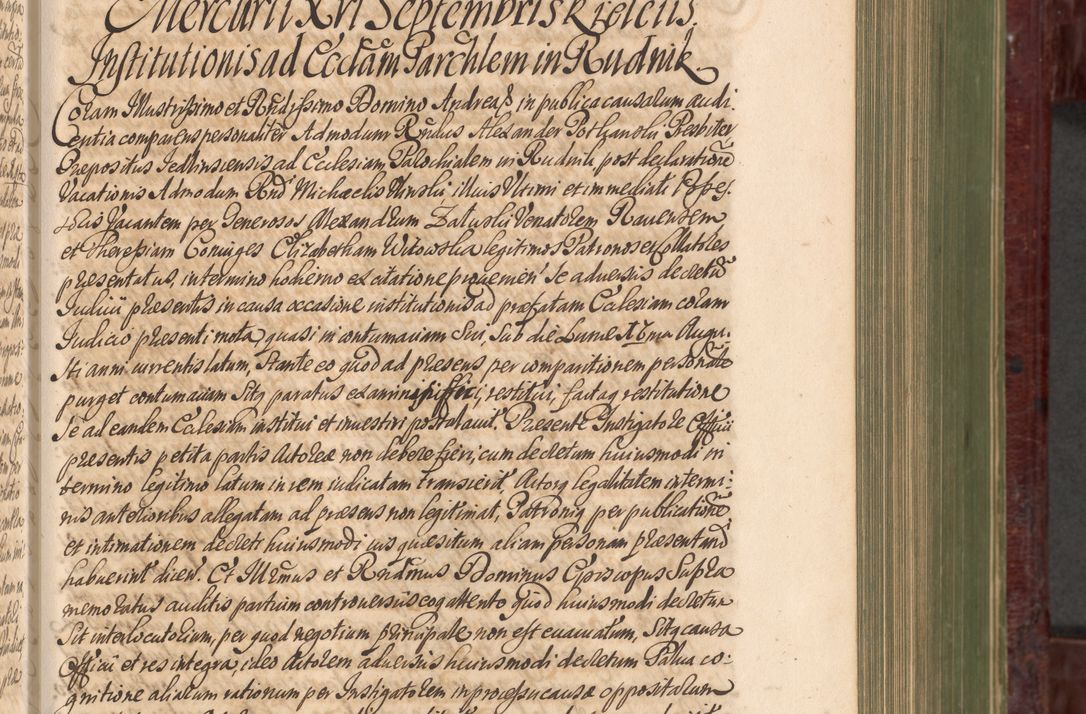 Mercurii XVI Septembris Kielciis
Institutionis ad Eccl̃am Parchlem in Rudnik
Coram Illustrissimo et Rñdissimo Domino Andrea ß in publica causarum audi
entia comparens personaliter Admodum Rñdus Alexander Potkanski Presbiter
Præpositus Jedlinscensis ad Ecclesiam Palochialem in Rudnik post declaratiõne
Vacationis Admodum Rnd Michaelis illius Ultimi et immediati Posses
soris Vacantem per Generosos Alexandrum Zaluski Venatorem Ravensem
et Theresiam Coniuges Elizabetham Witowska legitimos Patronos et Collatores
præsentatus, in termino hodierno ex citatione provenien se adversus decretũ
Iudicii præsentis in causa occasione institutionis ad præfatam Ecclesiam coram
Iudicio præsenti mota quasi in contumaciam Sui, Sub die Lunæ Augu
sti anni currentis latum, Stante eo quod ad præsens per comparitionem personale
purget contumaciam Sitq paratus examini restitui, factaq restitutione
Se ad eandem Ecclesiam institui et investiri postulavit. Præsente Instigatore Officii
præsentis petita partis Actoreæ non debere fieri, cum decretum huiusmodi in
termino legitimo latum in rem iudicatam transierit Actorq legalitatem in termi:
nis anterioribus allegatam ad præsens non legitimat, Patroniq per publicationẽ
et intimationem decreti huiusmodi ius quæsitum aliam personam præsentand
habuerint dicen. Et Illr̃mus et Rndm̃us Dominus Episcopus Supra
memoratus auditis partium controversiis eoq attento quod huiusmodi decretum
Sit interlocutorium, per quod negotium principale non est evacuatum, Sitq causa
Officii et res integra, ideo Actorem adversus huiusmodi decretum Salva co:
gnitione aliarum rationum per Instigatorem in processu causæ oppositarum